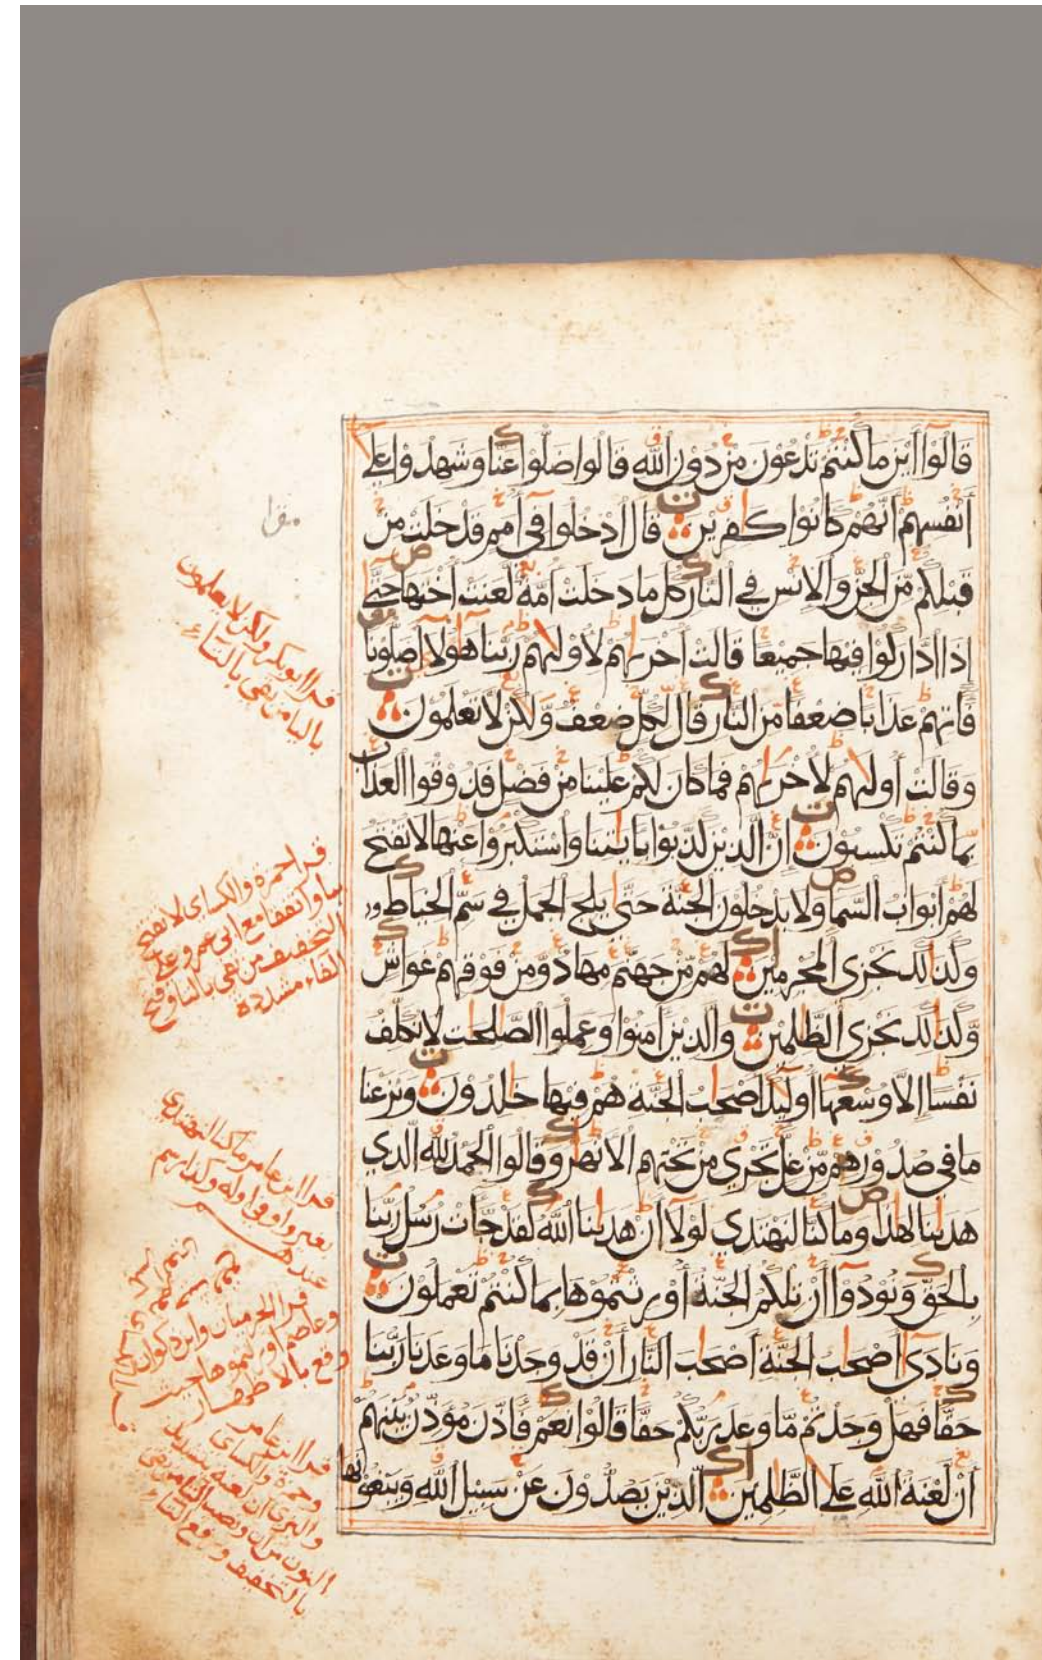 قَالُوٓا أَيْنَ مَا كُنْتُمْ تَدْعُوْنَ مِنْ دُوْنِ اللَّهِ قَالُوا ضَلُّوا عَنَّا وَشَهِدُوْا عَلَىٰ
أَنْفُسِهِمْ أَنَّهُمْ كَانُوْا كٰفِرِيْنَ قَالَ ادْخُلُوا فِيٓ أُمَمٍ قَدْ خَلَتْ مِنْ
قَبْلِكُمْ مِّنَ الْجِنِّ وَالْإِنْسِ فِي النَّارِ كُلَّمَا دَخَلَتْ أُمَّةٌ لَّعَنَتْ أُخْتَهَا حَتَّىٰٓ
إِذَا ادَّارَكُوْا فِيْهَا جَمِيْعًا قَالَتْ أُخْرٰىهُمْ لِأُوْلٰىهُمْ رَبَّنَا هٰٓؤُلَآءِ أَضَلُّوْنَا
فَـَٔاتِهِمْ عَذَابًا ضِعْفًا مِّنَ النَّارِ قَالَ لِكُلٍّ ضِعْفٌ وَّلٰكِنْ لَّا تَعْلَمُوْنَ
وَقَالَتْ أُوْلٰىهُمْ لِأُخْرٰىهُمْ فَمَا كَانَ لَكُمْ عَلَيْنَا مِنْ فَضْلٍ فَذُوْقُوا الْعَذَابَ
بِمَا كُنْتُمْ تَكْسِبُوْنَ إِنَّ الَّذِيْنَ كَذَّبُوْا بِـَٔايٰتِنَا وَاسْتَكْبَرُوْا عَنْهَا لَا تُفَتَّحُ
لَهُمْ أَبْوَابُ السَّمَآءِ وَلَا يَدْخُلُوْنَ الْجَنَّةَ حَتَّىٰ يَلِجَ الْجَمَلُ فِي سَمِّ الْخِيَاطِ
وَكَذٰلِكَ نَجْزِي الْمُجْرِمِيْنَ لَهُمْ مِّنْ جَهَنَّمَ مِهَادٌ وَّمِنْ فَوْقِهِمْ غَوَاشٍ
وَّكَذٰلِكَ نَجْزِي الظّٰلِمِيْنَ وَالَّذِيْنَ اٰمَنُوْا وَعَمِلُوا الصّٰلِحٰتِ لَا نُكَلِّفُ
نَفْسًا إِلَّا وُسْعَهَآ أُوْلٰٓئِكَ أَصْحٰبُ الْجَنَّةِ هُمْ فِيْهَا خٰلِدُوْنَ وَنَزَعْنَا
مَا فِي صُدُوْرِهِمْ مِّنْ غِلٍّ تَجْرِيْ مِنْ تَحْتِهِمُ الْأَنْهٰرُ وَقَالُوا الْحَمْدُ لِلّٰهِ الَّذِي
هَدٰىنَا لِهٰذَا وَمَا كُنَّا لِنَهْتَدِيَ لَوْلَآ أَنْ هَدٰىنَا اللَّهُ لَقَدْ جَآءَتْ رُسُلُ رَبِّنَا
بِالْحَقِّ وَنُوْدُوْٓا أَنْ تِلْكُمُ الْجَنَّةُ أُوْرِثْتُمُوْهَا بِمَا كُنْتُمْ تَعْمَلُوْنَ
وَنَادَىٰٓ أَصْحٰبُ الْجَنَّةِ أَصْحٰبَ النَّارِ أَنْ قَدْ وَجَدْنَا مَا وَعَدَنَا رَبُّنَا
حَقًّا فَهَلْ وَجَدْتُّمْ مَّا وَعَدَ رَبُّكُمْ حَقًّا قَالُوْا نَعَمْ فَأَذَّنَ مُؤَذِّنٌۢ بَيْنَهُمْ
أَنْ لَّعْنَةُ اللَّهِ عَلَى الظّٰلِمِيْنَ الَّذِيْنَ يَصُدُّوْنَ عَنْ سَبِيْلِ اللَّهِ وَيَبْغُوْنَهَا
قرا ابو بكر ولكن لا يعلمون
باليا من بقي بالتاء
قرا حمزة والكساي لا تفتح
بيا واتفقا مع ابي عمرو على
التخفيف من بقي بالتا وفتح
الفاء مشددة
قرا ابن عامر ما كنا لنهتدي
بغير واو في اوله وكذا رسم
عندهم
قرا الحرميان وابن ذكوان
وعاصم اورثتموها حيث
وقع بالاظهار
قرا ابن عامر
وحمزة والكساي
والبزي ان لعنة بتشديد
النون من ان ونصب التا من بقي
بالتخفيف ورفع التاء